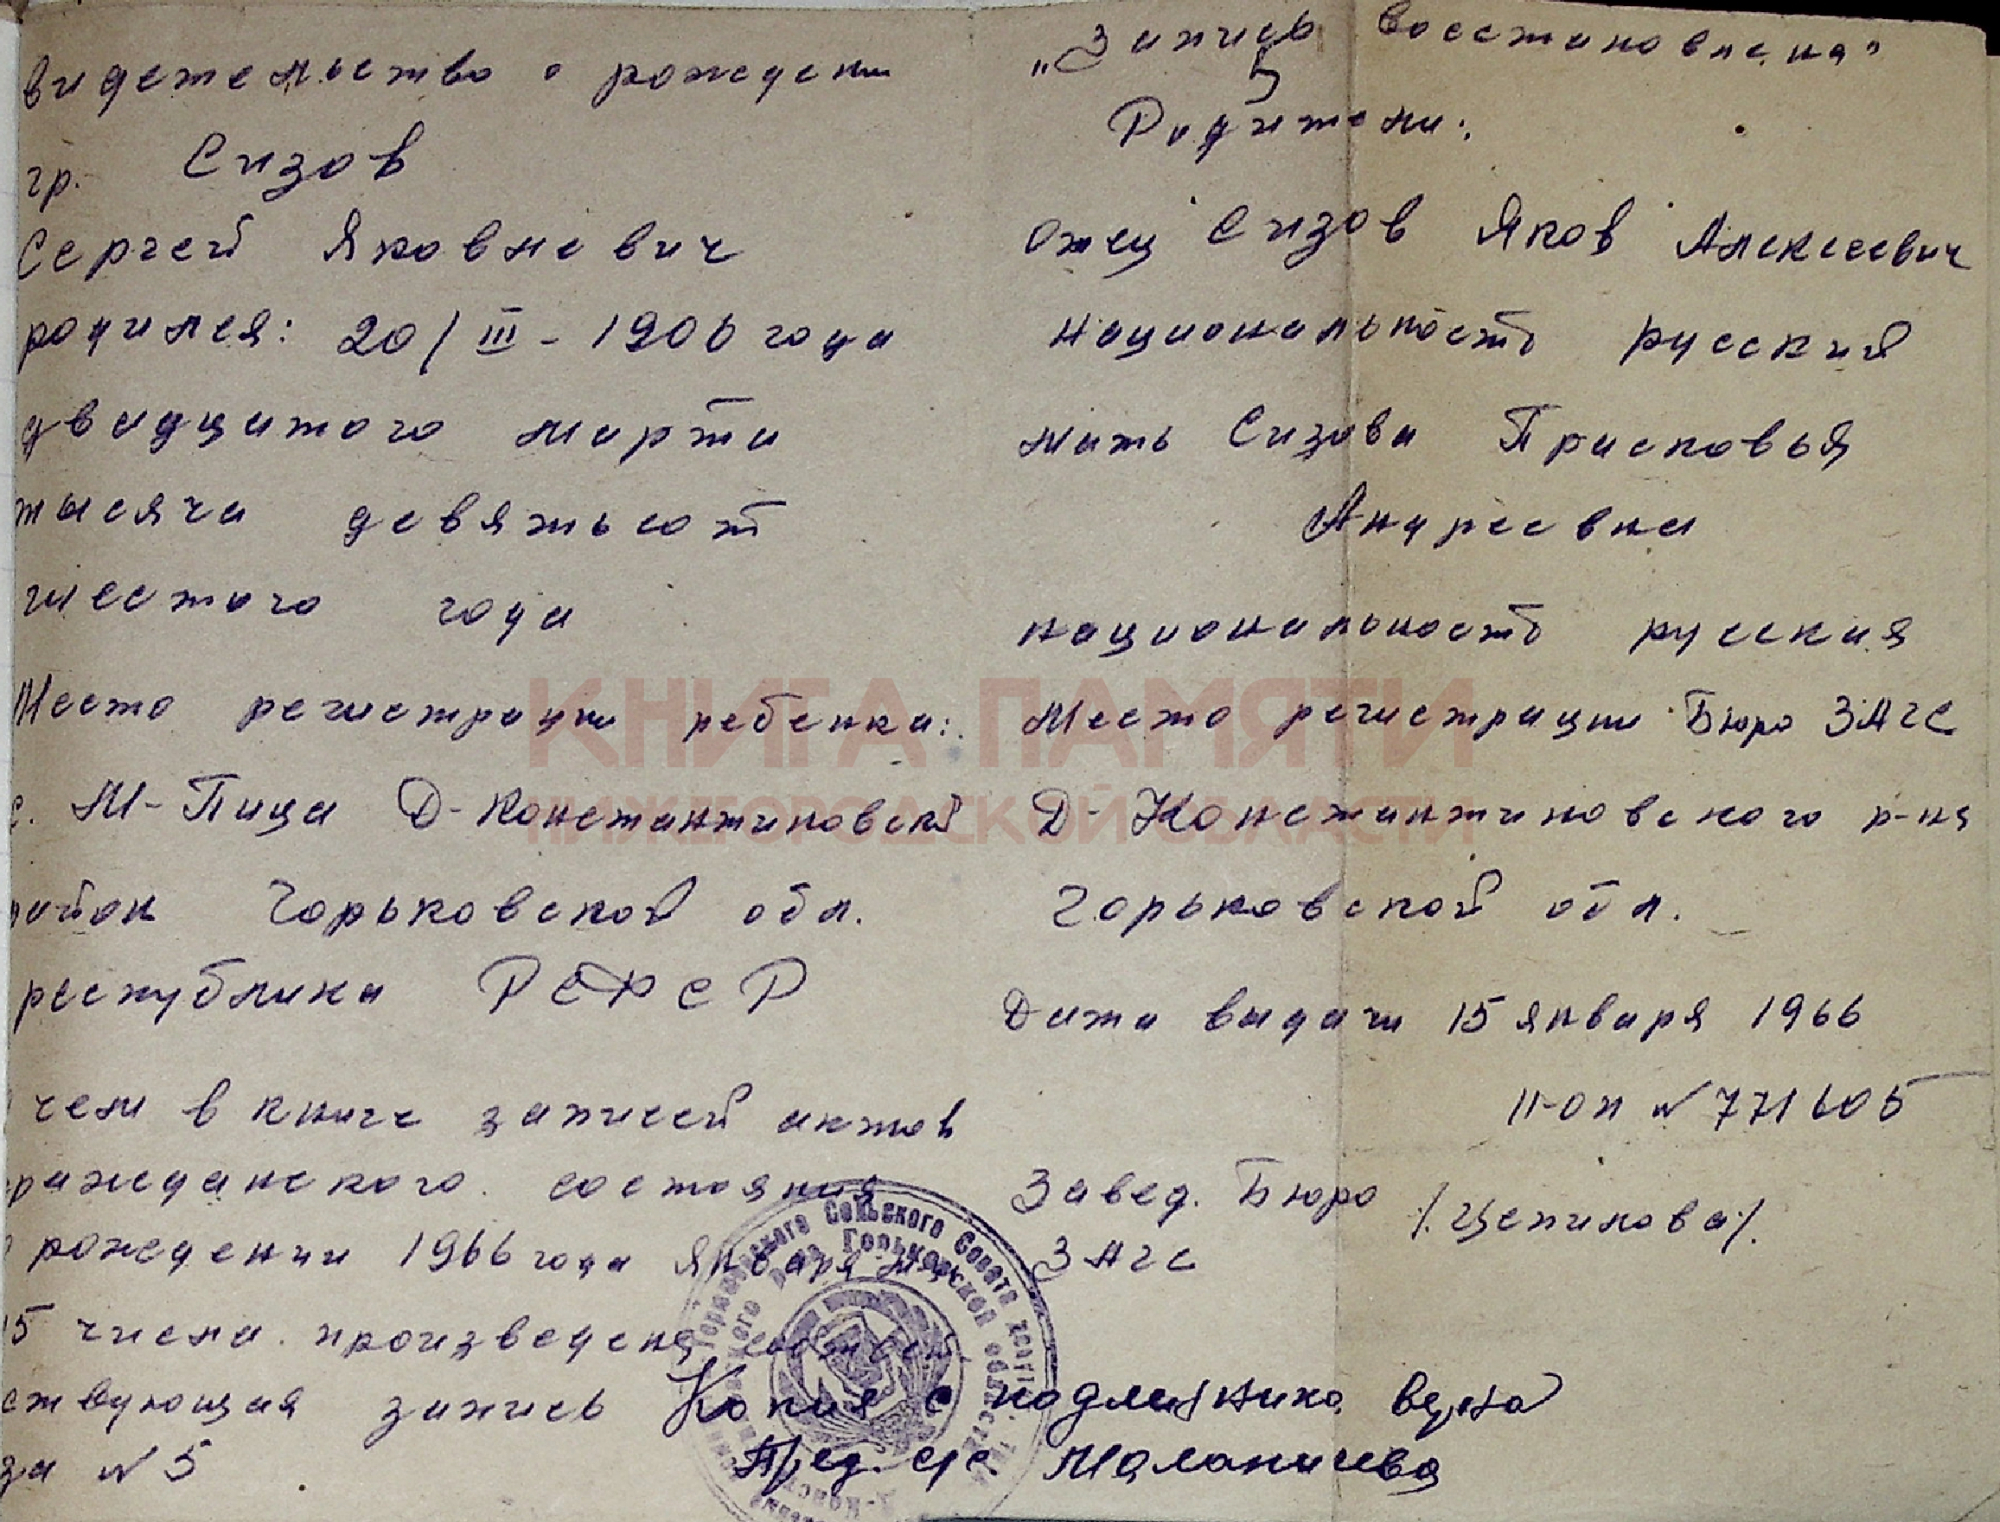 видетельство о рождении
гр. Сизов
Сергей Яковлевич
родился: 20/III - 1906 года
двадцатого марта
тысяча девятьсот
шестого года
Место регистрации ребенка:
с. М-Пица Д-Константиновский
район Горьковской обл.
республика РСФСР
чем в книге записей актов
гражданского состояния
о рождении 1966 года января м-ца
15 числа произведена соответ
ствующая запись
за № 5
"Запись восстановлена"
Родители:
Отец Сизов Яков Алексеевич
национальность русский
мать Сизова Прасковья
Андреевна
национальность русская
Место регистрации Бюро ЗАГС
Д-Константиновского р-на
Горьковской обл.
Дата выдачи 15 января 1966
II-ОП № 771605
Завед. Бюро /Цепилова/.
ЗАГС
Копия с подлинника верна
Пред. с/с. Маланичева
КНИГА ПАМЯТИ
НИЖЕГОРОДСКОЙ ОБЛАСТИ
Сельского Совета
Горьковской области